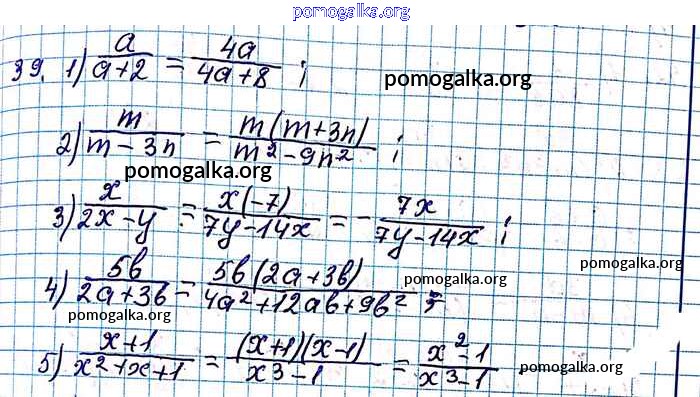 pomogalka.org
39. 1) a/(a+2) = 4a/(4a+8) ; pomogalka.org
2) m/(m-3n) = m(m+3n)/(m²-9n²) ;
pomogalka.org
3) x/(2x-y) = x(-7)/(7y-14x) = -7x/(7y-14x) ;
pomogalka.org
4) 5b/(2a+3b) = 5b(2a+3b)/(4a²+12ab+9b²) ; pomogalka.org
pomogalka.org
5) (x+1)/(x²+x+1) = (x+1)(x-1)/(x³-1) = (x²-1)/(x³-1) pomogalka.org